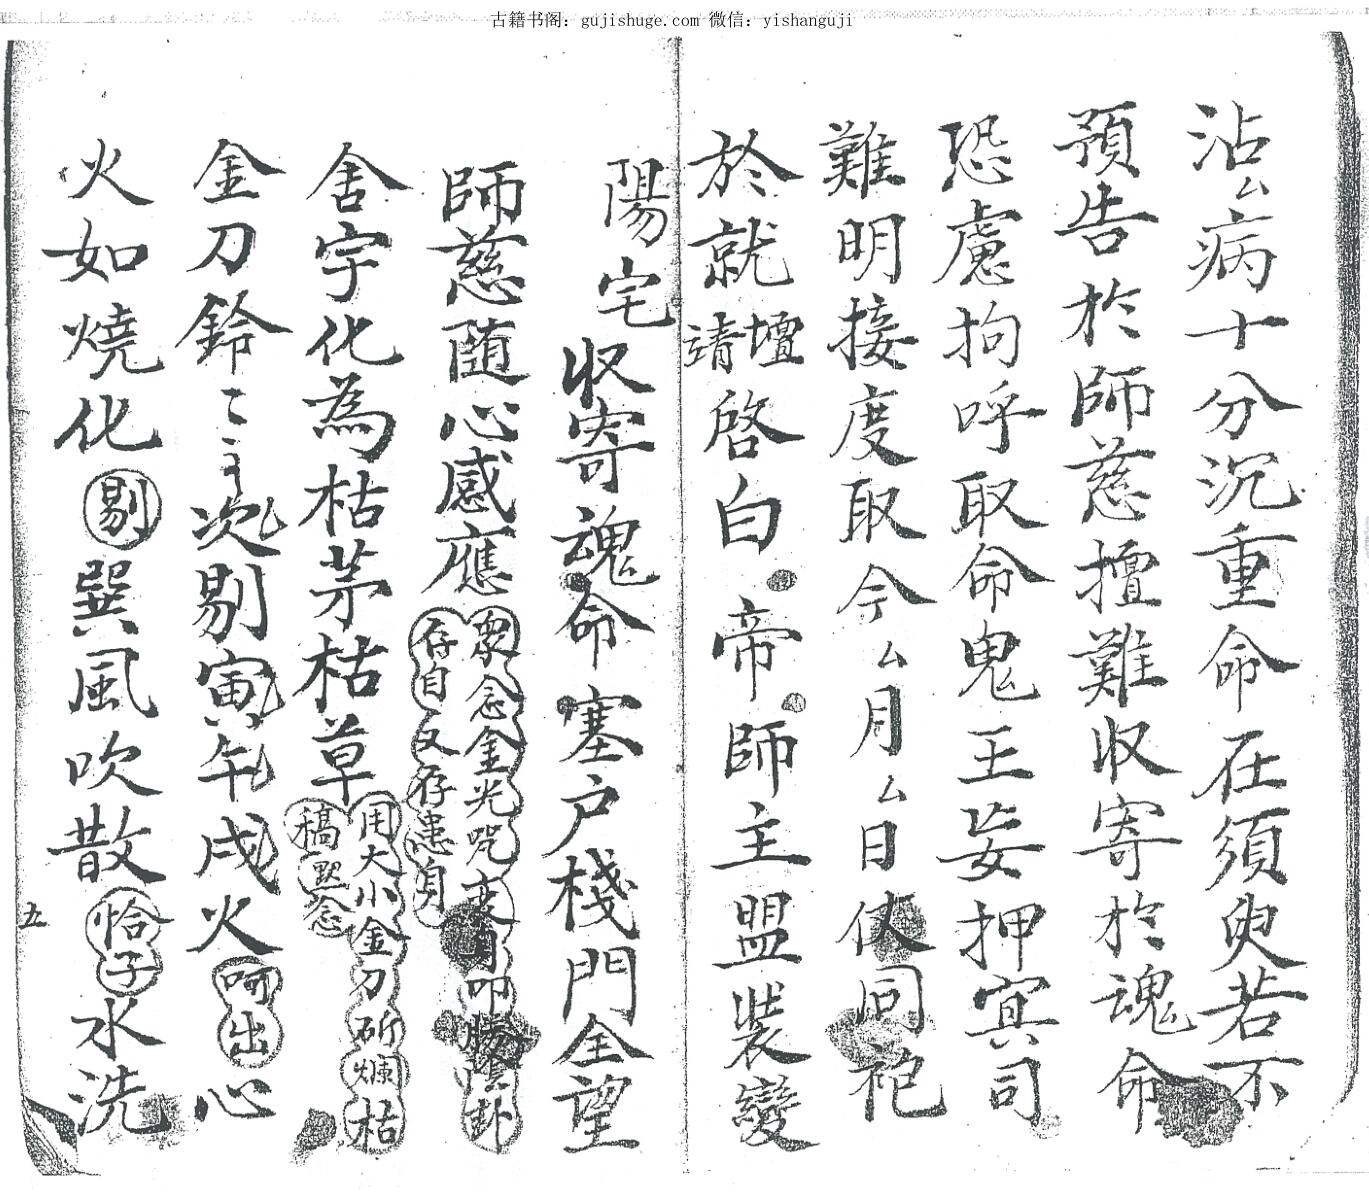 古籍书阁：gujishuge.com 微信：yishanguji
沾厶病十分沉重命在須臾若不
預告於師慈壇難収寄於魂命
恐慮拘呼取命鬼王妄押冥司
難明接度取今厶月厶日伏同袍
於就壇靖啓白帝師主盟裝變
陽宅収寄魂命塞户棧門全望
師慈随心感應衆念金光咒 叩騰 卦
存自 又存患身
舍宇化為枯茅枯草用大小金刀斫爛枯
稿默念
金刀鈴 次剔寅午戌火呵出心
火如燒化剔巽風吹散恰子水洗
五